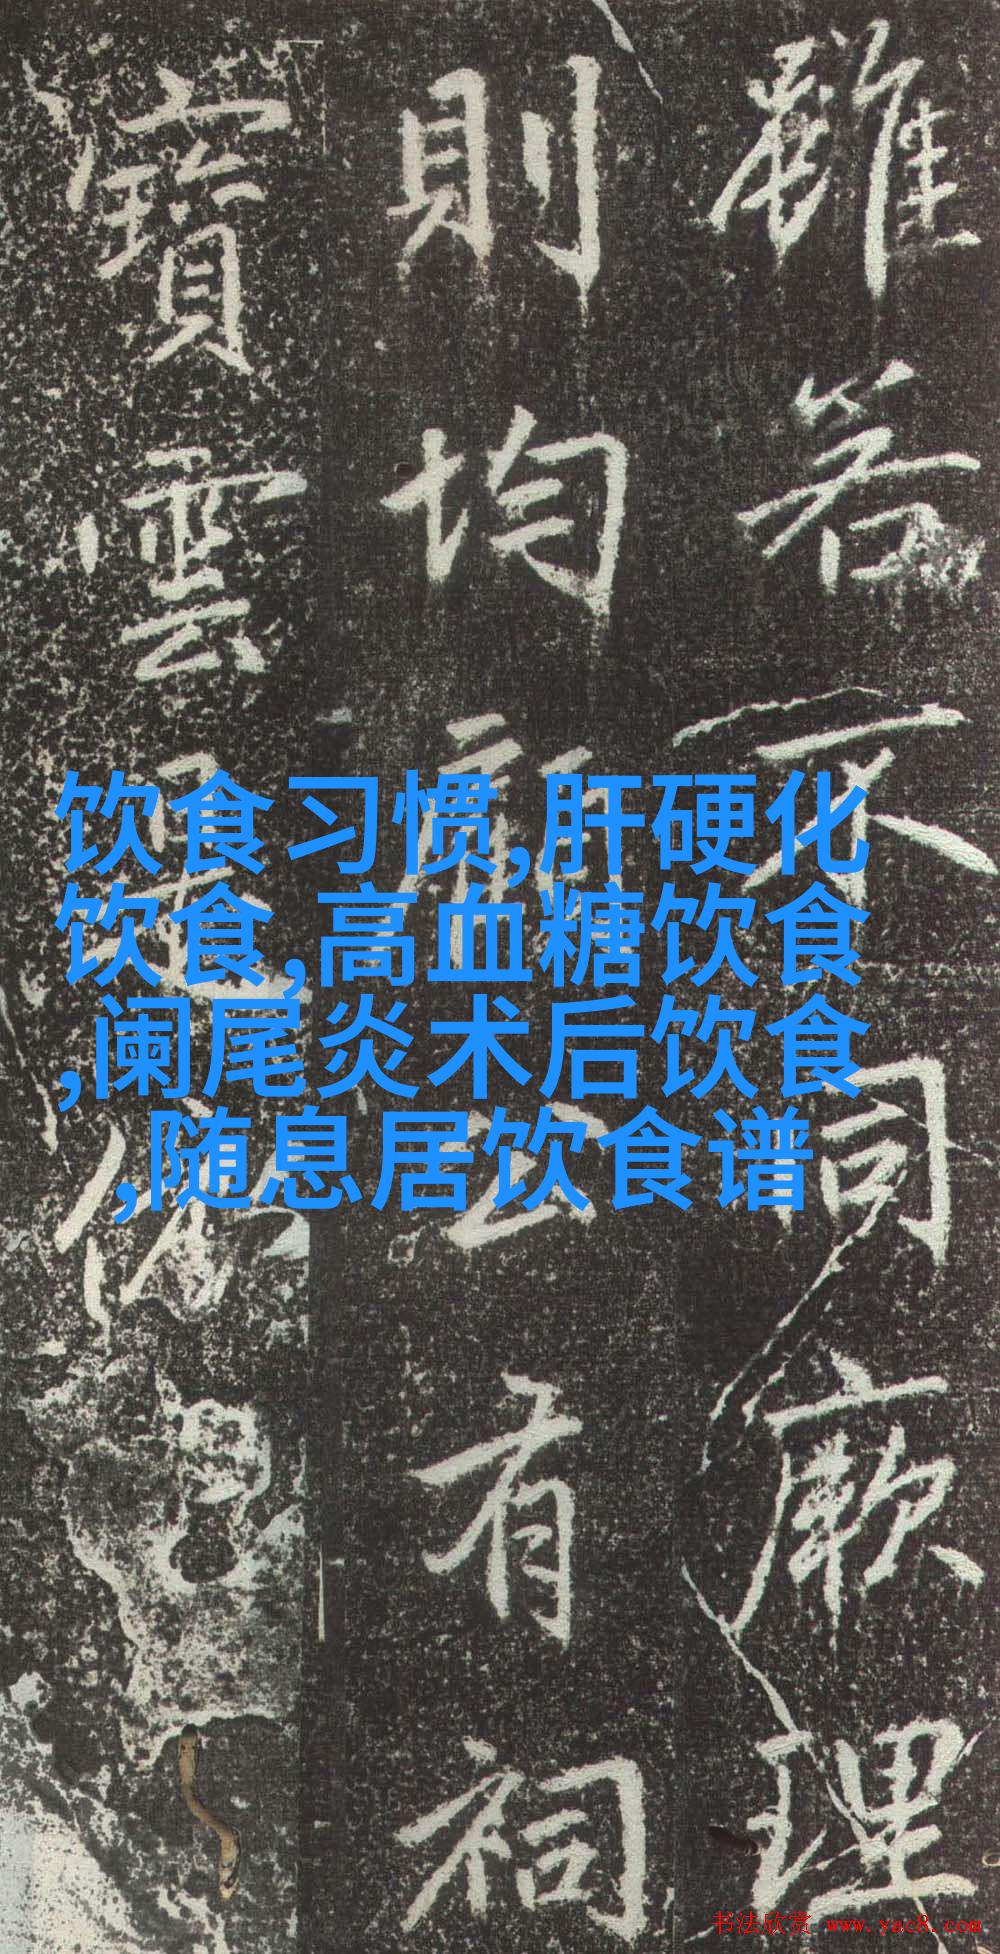 雖若不同厥理
則均
有祠
寶雲
饮食习惯,肝硬化
饮食,高血糖饮食
,阑尾炎术后饮食
,随息居饮食谱
书法欣赏 www.yac8.com